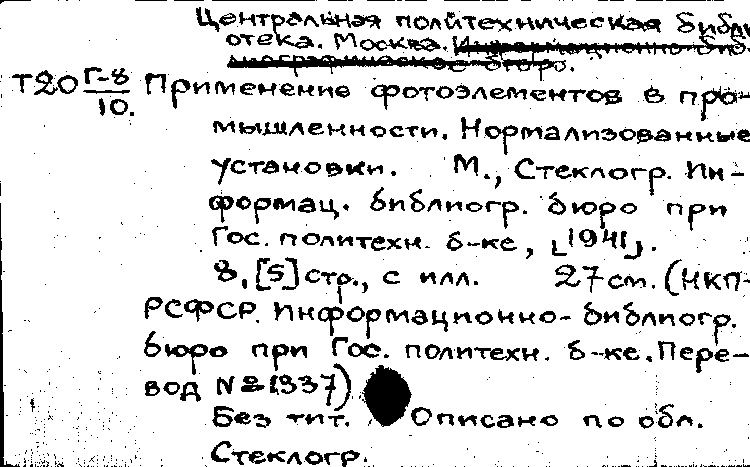 Центральная политехническая библи
отека. Москва. Информационно-биб-
лиографическое бюро.
Т20 Г-8/10. Применение фотоэлементов в про-
мышленности. Нормализованные
установки. М., Стеклогр. Ин-
формац. библиогр. бюро при
Гос. политехн. б-ке, [1941].
8, [5] стр., с илл. 27 см. (НКП-
РСФСР. Информационно-библиогр.
бюро при Гос. политехн. б-ке. Пере-
вод № 1337)
Без тит. Описано по обл.
Стеклогр.